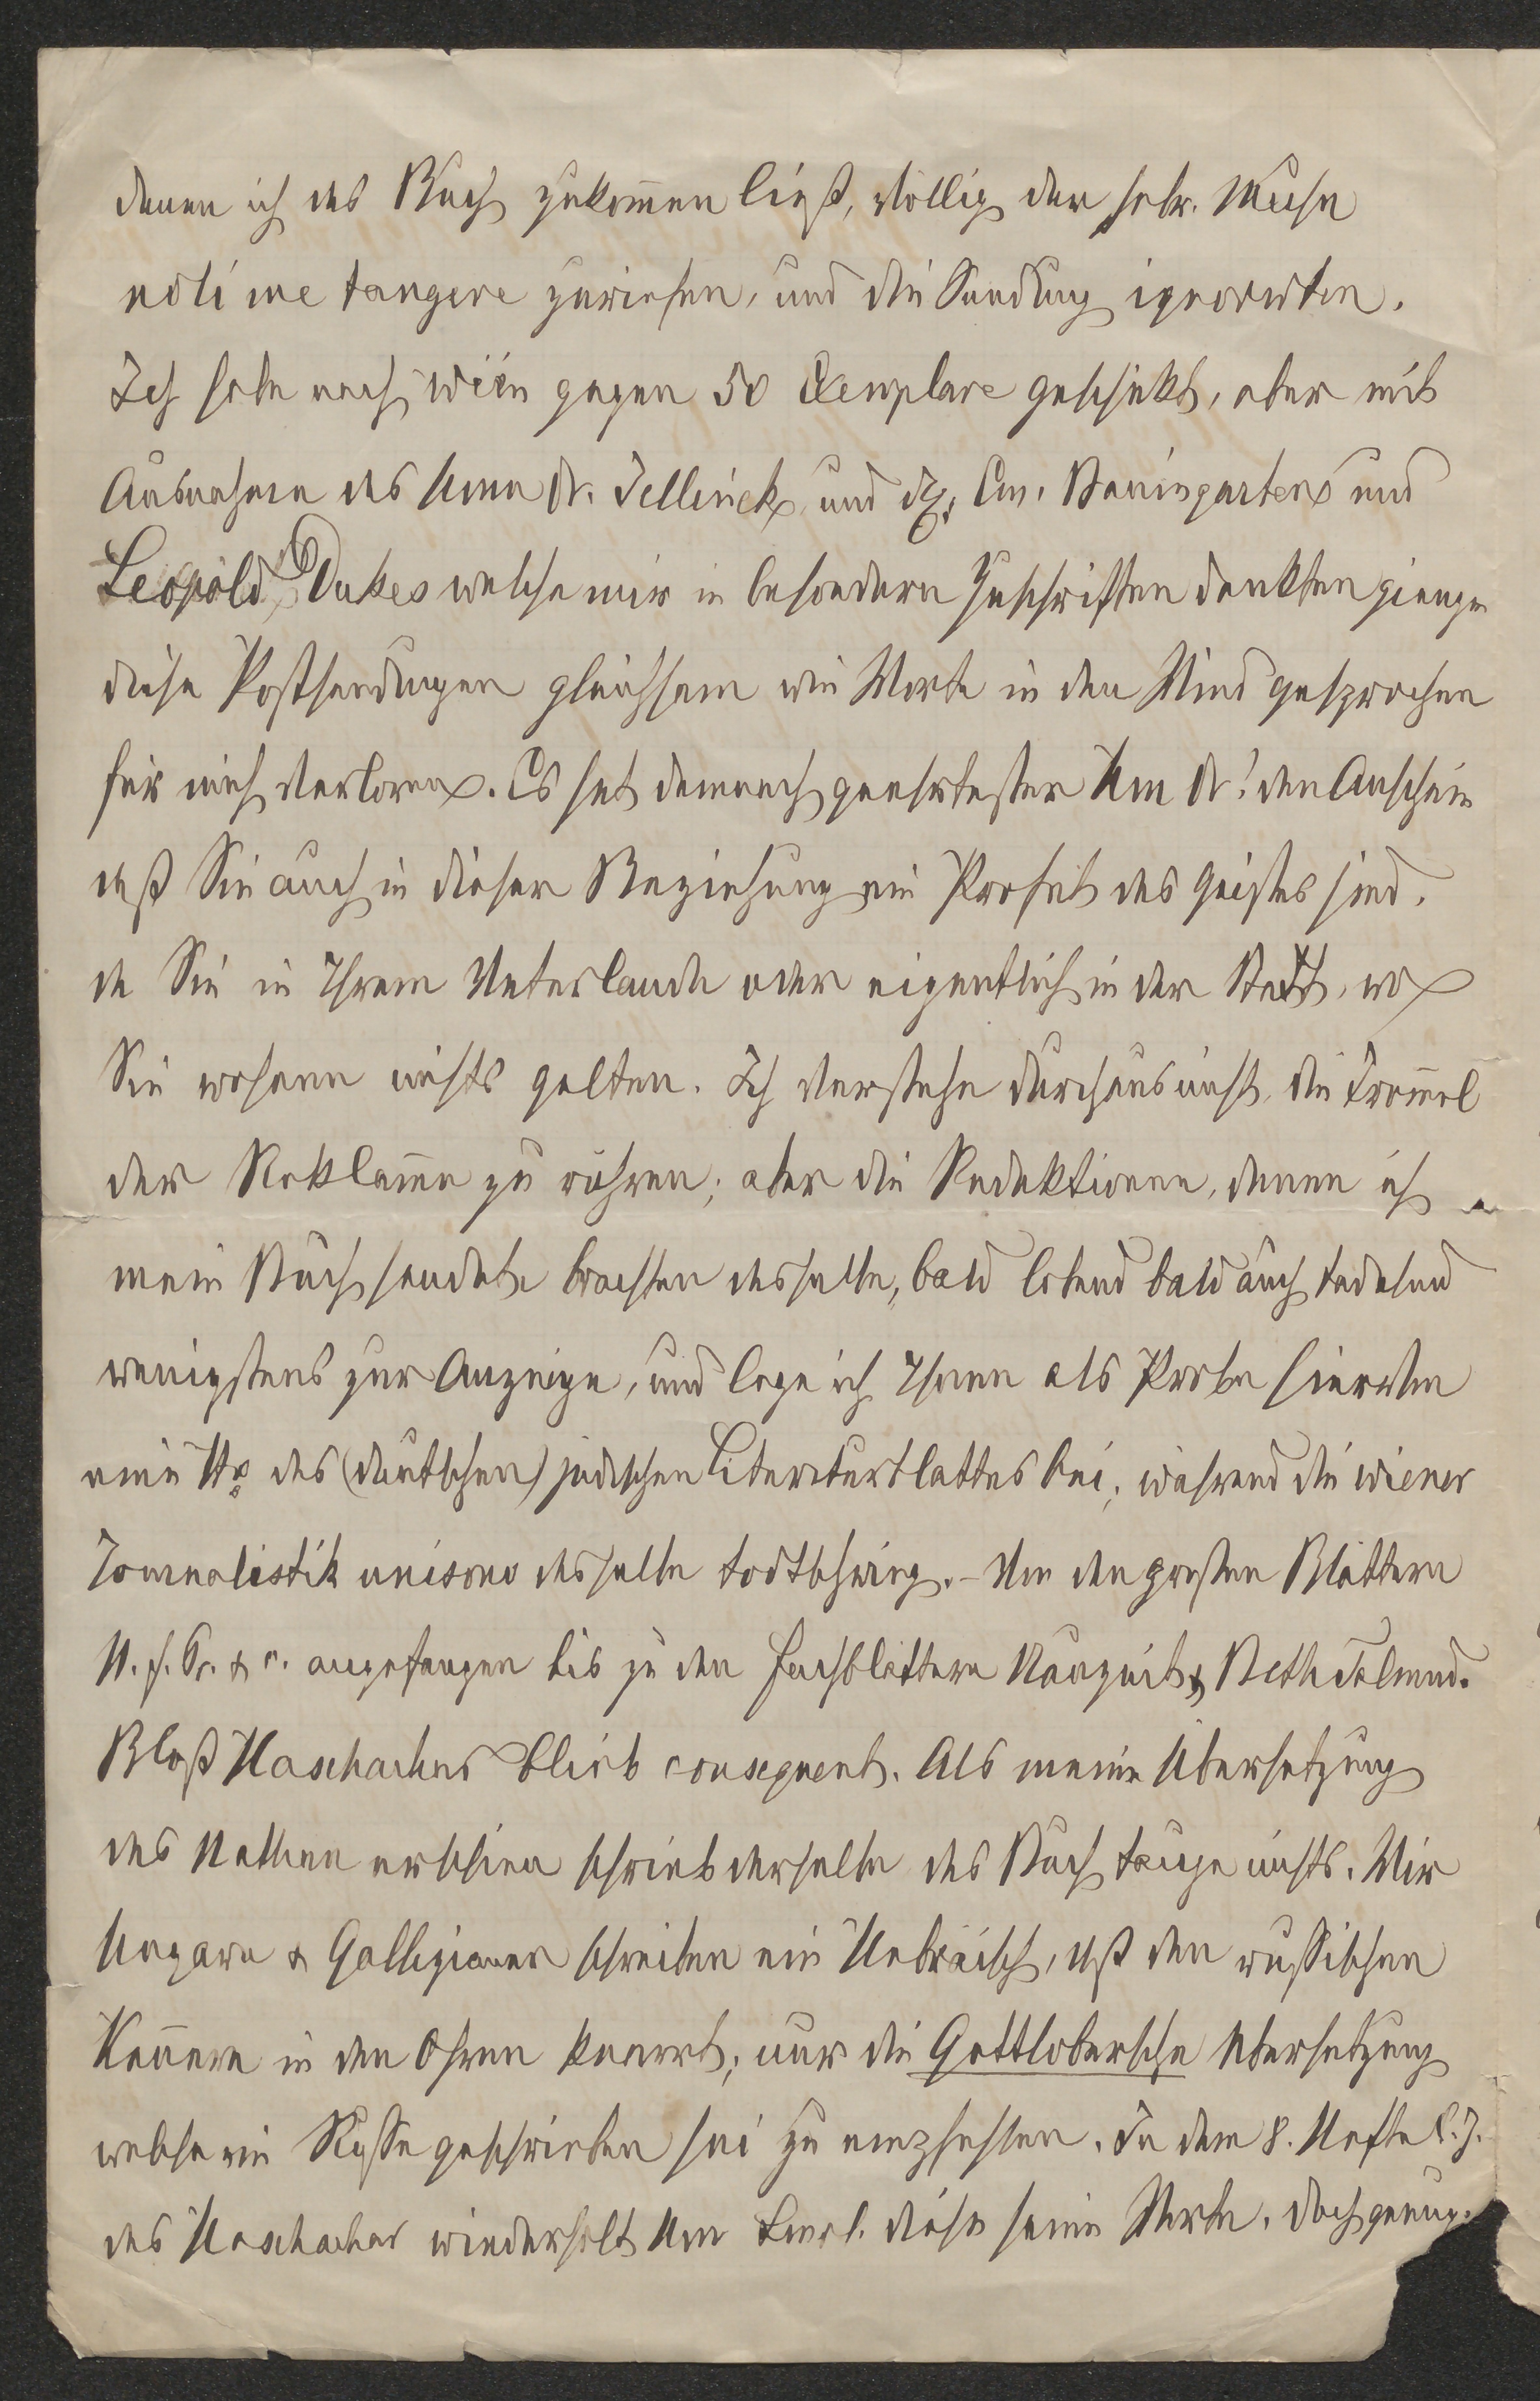 denen ich das Buch zukom̄en ließ, völlig der hebr. Muse
noli me tangere zuriefen, und die Sendung ignorirten.
Ich habe nach Wien gegen 50 Exemplare geschickt, aber mit
Ausnahme des Herrn Dr. Jellinek und Em. Baumgarten und
Leopold Dukes welche mir in besondern Zuschriften dankten giengen
diese Postsendungen gleichsam wie Worte in den Wind gesprochen
für mich verloren. Es hat demnach geehrtester Herr Dr! den Anschein
daß Sie auch in dieser Beziehung ein Profet des Geistes sind.
da Sie in Ihrem Vaterlande oder eigentlich in der Stadt, wo
Sie wohnen nichts gelten. Ich verstehe durchaus nicht, die Trom̄el
der Reklame zu rühren; aber die Redaktionen, denen ich
mein Buch sendete brachten dasselbe, bald lobend bald auch tadelnd
wenigstens zur Anzeige, und lege ich Ihnen als Probe hierorts
eine No des (deutschen) jüdischen Literaturblattes bei, während die Wiener
Journalistik unisono dasselbe todtschwieg. – Von den großen Blättern
N. f. Pr. & c. angefangen bis zu den Fachblättern Neuzeit & Beth Talmud.
Bloß Haschachar blieb consequent. Als meine Übersetzung
des Nathan erschien schrieb derselbe das Buch tauge nichts. Wir
Ungarn & Gallizianer schreiben ein Hebräisch, daß den russischen
Kennern in den Ohren knarrt; nur die Gottlobersche Übersetzung
welche ein Russe geschrieben sei zu empfehlen. In dem 8. Hefte l. J.
des Haschachar wiederholt Herr Smol. diese seine Worte. Doch genug.